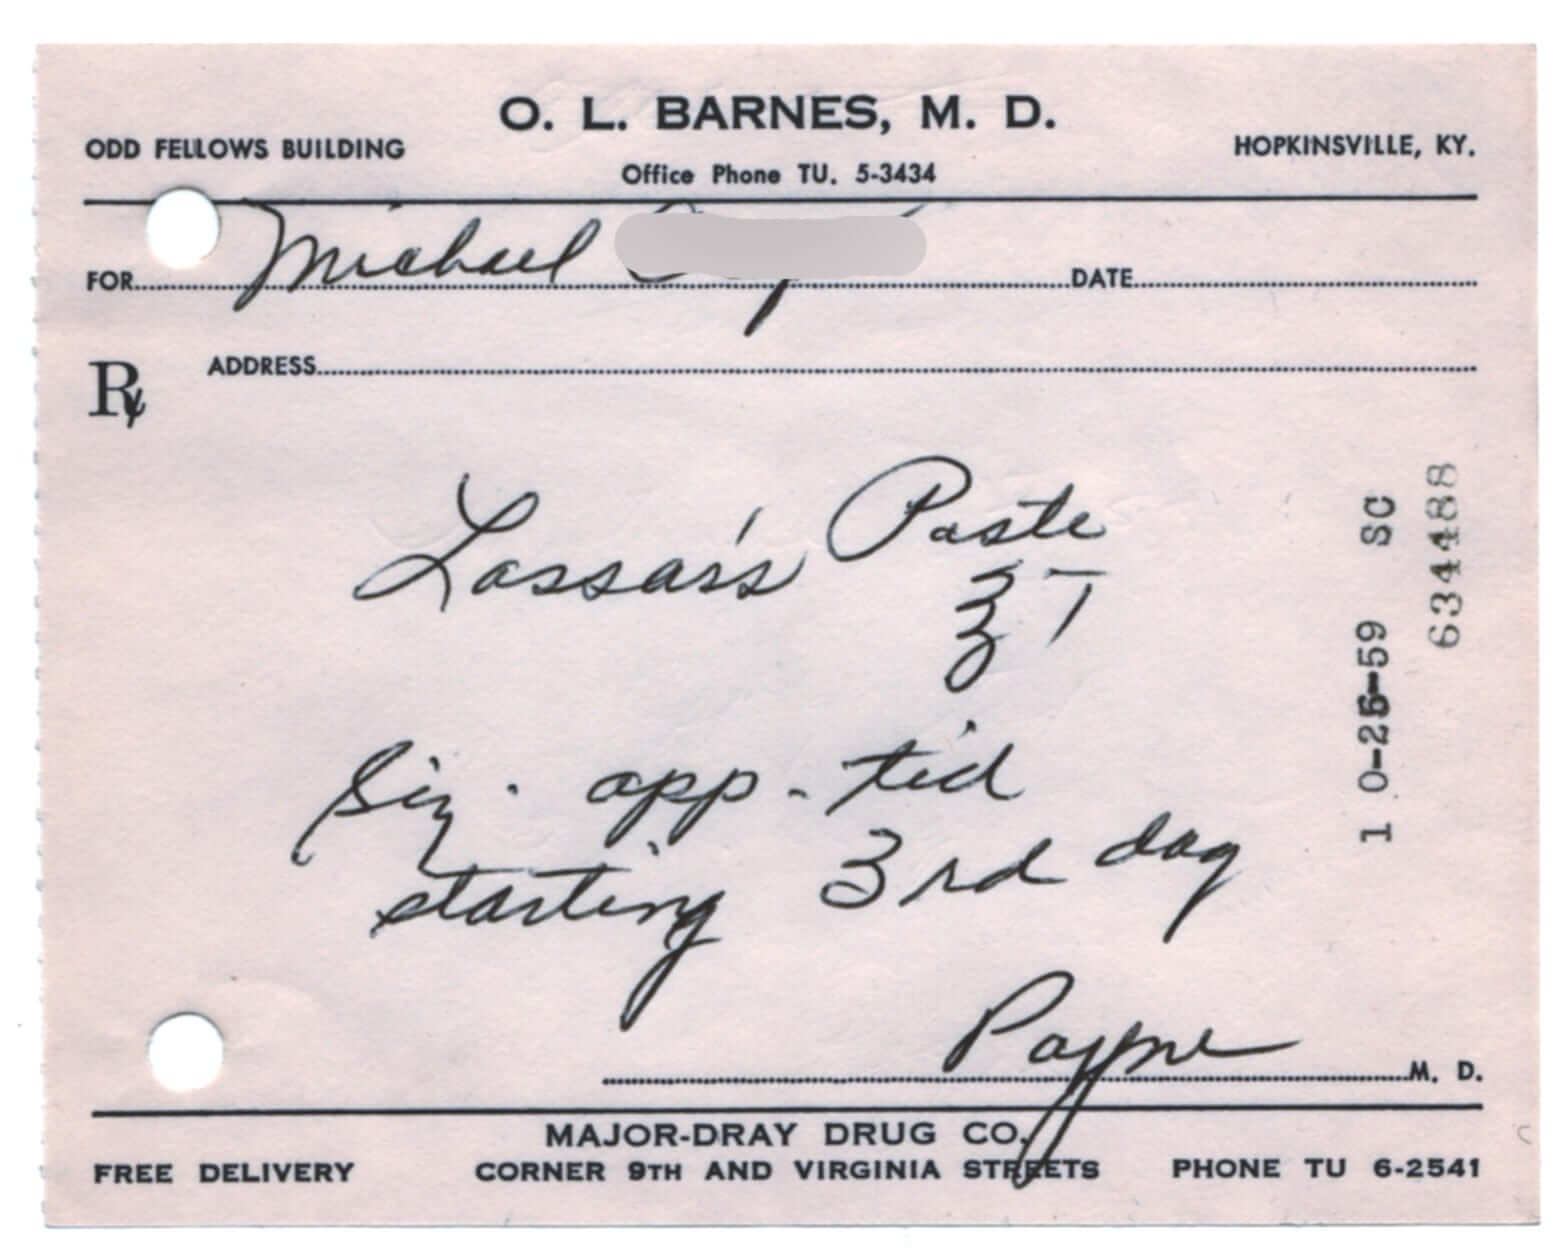 O. L. BARNES, M. D.
ODD FELLOWS BUILDING
HOPKINSVILLE, KY.
Office Phone TU. 5-3434
FOR Michael DATE
℞ ADDRESS
Lassar's Paste
℥ T
Sig. app. tid
starting 3rd day
Payne M. D.
10-25-59 SC
634488
MAJOR-DRAY DRUG CO.
FREE DELIVERY CORNER 9TH AND VIRGINIA STREETS PHONE TU 6-2541